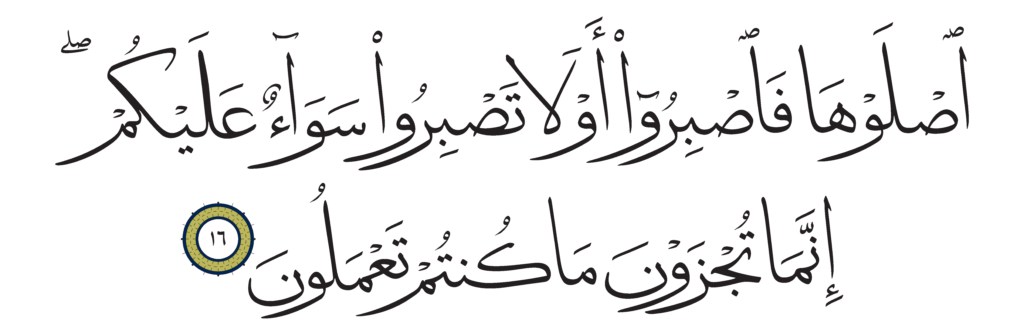 ٱصْلَوْهَا فَٱصْبِرُوٓا۟ أَوْ لَا تَصْبِرُوا۟ سَوَآءٌ عَلَيْكُمْ ۖ
إِنَّمَا تُجْزَوْنَ مَا كُنتُمْ تَعْمَلُونَ ١٦